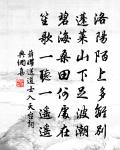 洛陽陌上多離別
蓬萊山下足波潮
碧海桑田何處在
笙歌一聽一遙遙
送道士入天台